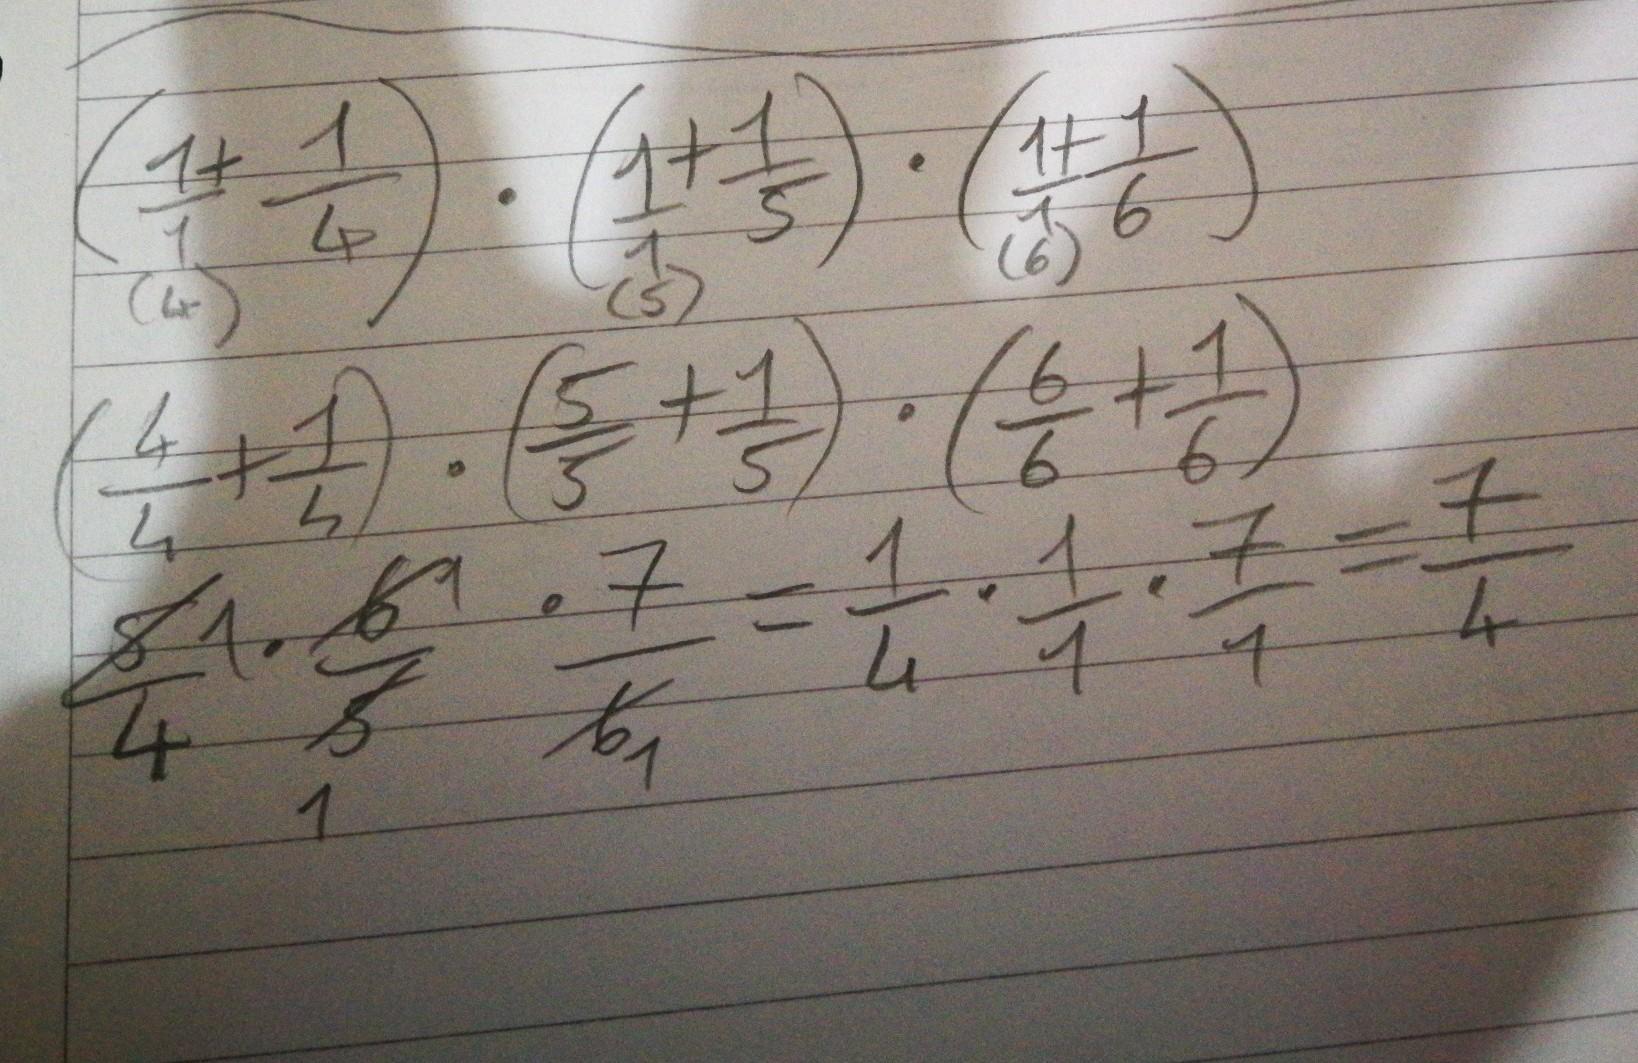 (1/1 + 1/4) · (1/1 + 1/5) · (1/1 + 1/6)
(4) (5) (6)
(4/4 + 1/4) · (5/5 + 1/5) · (6/6 + 1/6)
5/4 1 · 6/5 1 · 7/6 = 1/4 · 1/1 · 7/1 = 7/4
1 1